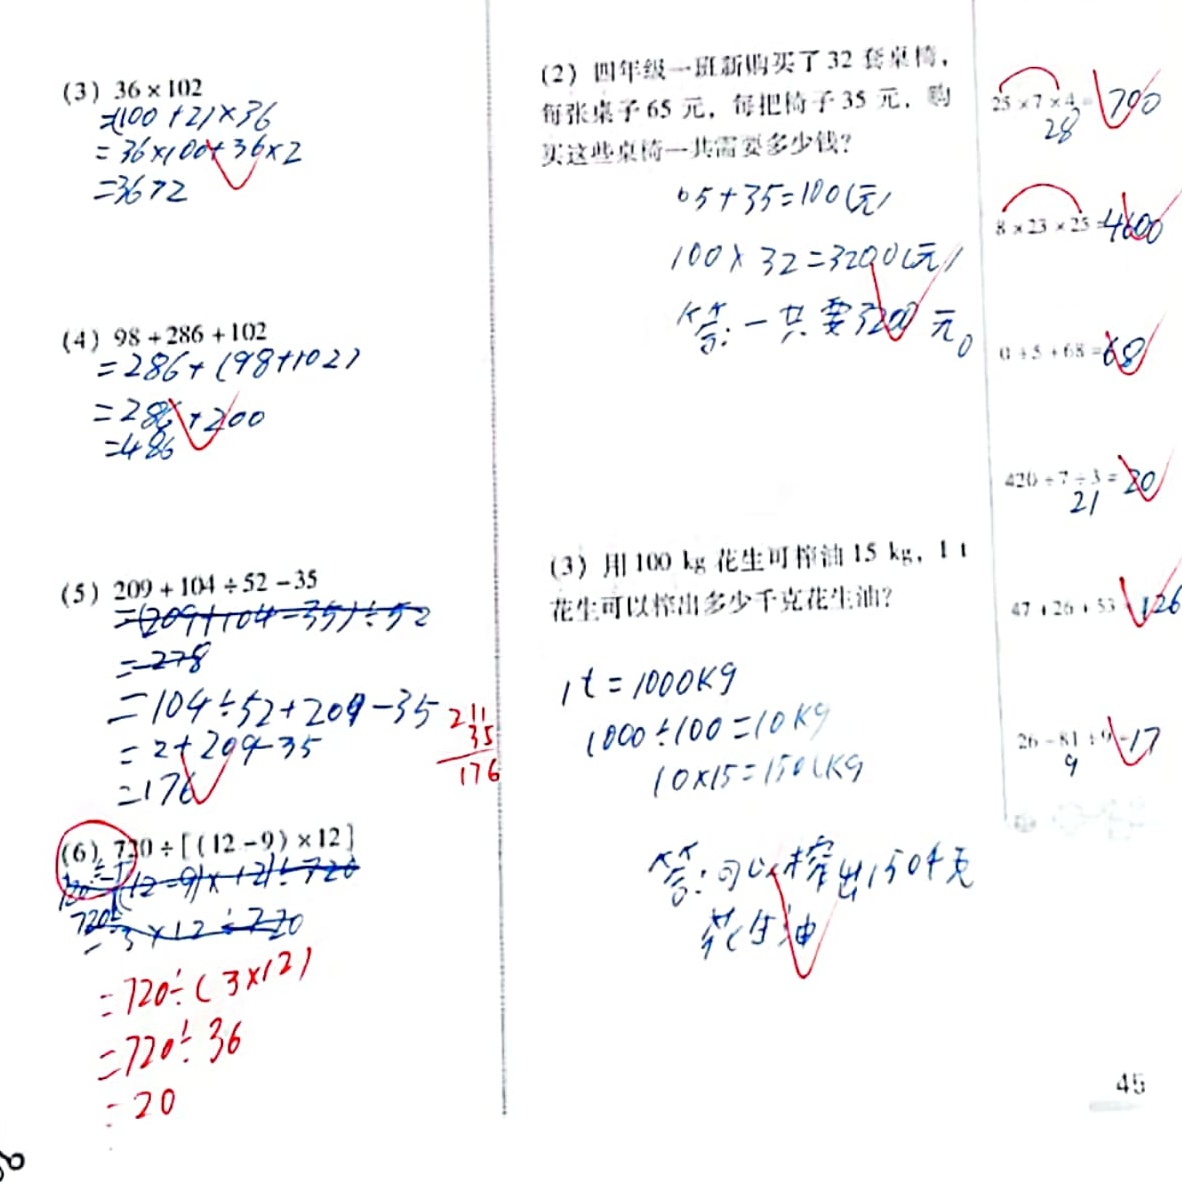 (3) 36×102
=(100+2)×36
=36×100+36×2
=3672
(4) 98+286+102
=286+(98+102)
=286+200
=486
(5) 209+104÷52-35
=(209+104-35)÷52
=278
=104÷52+209-35
=2+209-35
=176
211
35
176
(6) 720÷[(12-9)×12]
720÷
=3×12÷720
=720÷(3×12)
=720÷36
=20
(2) 四年级一班新购买了32套桌椅，
每张桌子65元，每把椅子35元，购
买这些桌椅一共需要多少钱？
65+35=100(元)
100×32=3200(元)
答:一共要3200元。
(3) 用100 kg花生可榨油15 kg，1 t
花生可以榨出多少千克花生油？
1t=1000Kg
1000÷100=10Kg
10×15=150(Kg
答:可以榨出150千克
花生油
25×7×4=700
28
8×23×25=4600
0÷5+68=68
420÷7÷3=20
21
47+26+53=126
26-81÷9=17
9
45